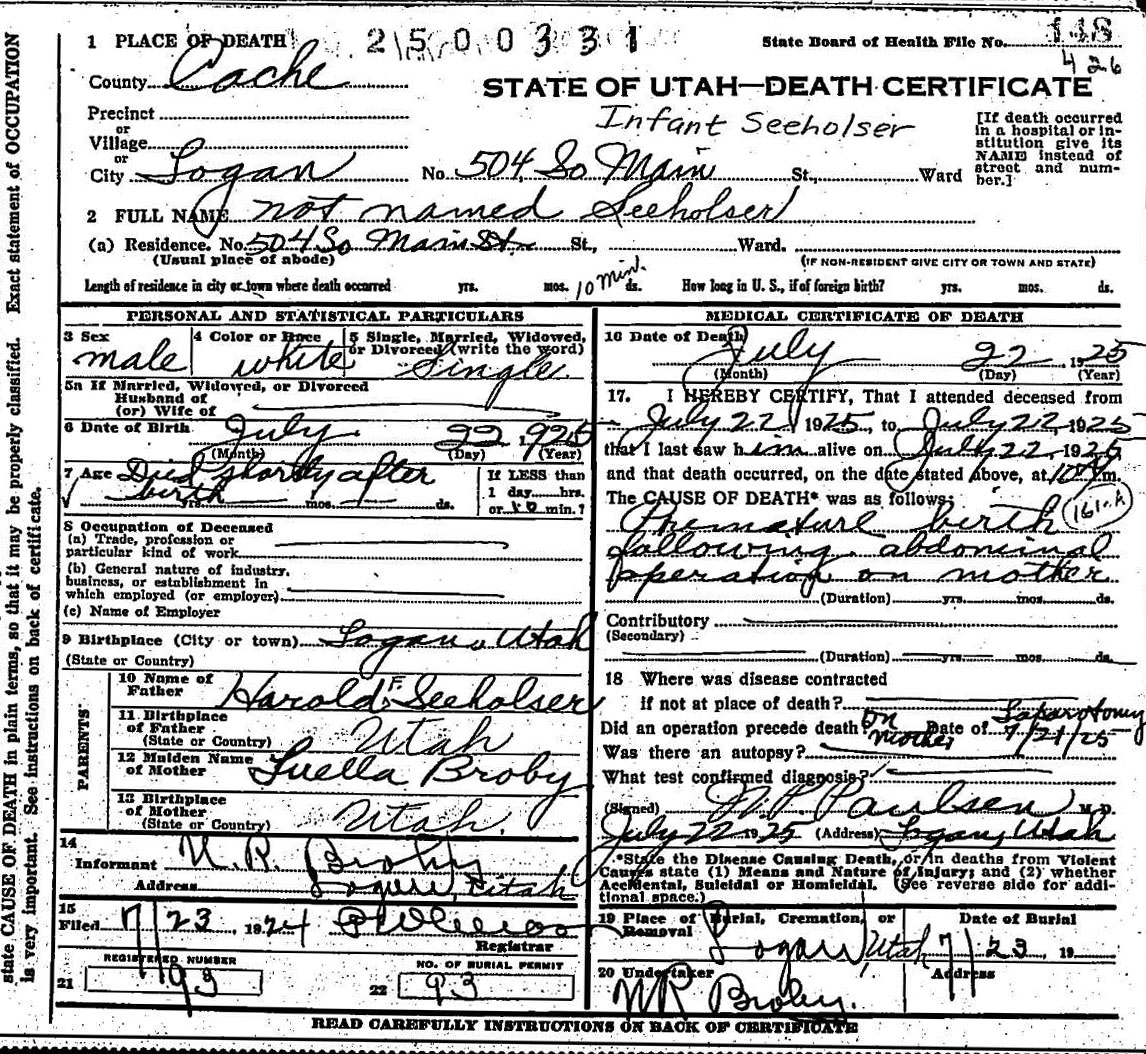 Exact statement of OCCUPATION
state CAUSE OF DEATH in plain terms, so that it may be properly classified.
is very important. See instructions on back of certificate.
1 PLACE OF DEATH 2500331 State Board of Health File No. 148
426
County Cache STATE OF UTAH—DEATH CERTIFICATE
Precinct Infant Seeholser
or
Village
or
City Logan No. 504 So Main St., Ward
[If death occurred
in a hospital or in-
stitution give its
NAME instead of
street and num-
ber.]
2 FULL NAME not named Seeholser
(a) Residence. No. 504 So Main St. St., Ward.
(Usual place of abode) (IF NON-RESIDENT GIVE CITY OR TOWN AND STATE)
Length of residence in city or town where death occurred yrs. mos. 10 min. ds. How long in U. S., if of foreign birth? yrs. mos. ds.
PERSONAL AND STATISTICAL PARTICULARS
3 Sex 4 Color or Race 5 Single, Married, Widowed,
or Divorced (write the word)
male white Single
5a If Married, Widowed, or Divorced
Husband of
(or) Wife of
6 Date of Birth July 22 1925
(Month) (Day) (Year)
7 Age Died shortly after
birth yrs. mos. ds.
If LESS than
1 day hrs.
or 10 min.?
8 Occupation of Deceased
(a) Trade, profession or
particular kind of work
(b) General nature of industry,
business, or establishment in
which employed (or employer)
(c) Name of Employer
9 Birthplace (City or town) Logan, Utah
(State or Country)
PARENTS
10 Name of
Father Harold F. Seeholser
11 Birthplace
of Father Utah
(State or Country)
12 Maiden Name
of Mother Luella Broby
13 Birthplace
of Mother Utah.
(State or Country)
14
Informant N. R. Broby
Address Logan, Utah
15
Filed 7/23, 1924
Registrar
REGISTERED NUMBER NO. OF BURIAL PERMIT
21 93 22 93
MEDICAL CERTIFICATE OF DEATH
16 Date of Death July 22 1925
(Month) (Day) (Year)
17. I HEREBY CERTIFY, That I attended deceased from
July 22, 1925, to July 22, 1925
that I last saw him alive on July 22, 1925
and that death occurred, on the date stated above, at 10 A m.
The CAUSE OF DEATH* was as follows:
161.A
Premature birth
following abdominal
operation on mother
(Duration) yrs. mos. ds.
Contributory
(Secondary)
(Duration) yrs. mos. ds.
18 Where was disease contracted
if not at place of death?
Did an operation precede death? on mother Date of Laparotomy 7/21/25
Was there an autopsy?
What test confirmed diagnosis?
(Signed) N. P. Paulsen M.D.
July 22 1925 (Address) Logan, Utah
*State the Disease Causing Death, or in deaths from Violent
Causes state (1) Means and Nature of Injury; and (2) whether
Accidental, Suicidal or Homicidal. (See reverse side for addi-
tional space.)
19 Place of Burial, Cremation, or
Removal Date of Burial
Logan, Utah 7/23, 19
20 Undertaker Address
NR Broby.
READ CAREFULLY INSTRUCTIONS ON BACK OF CERTIFICATE